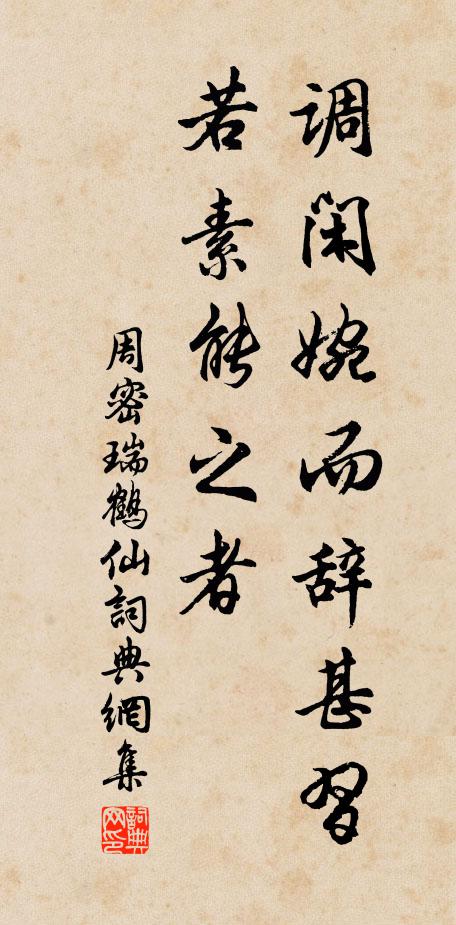 调闲婉而辞甚习
若素能之者
周密瑞鹤仙詞典網集
詞典网印